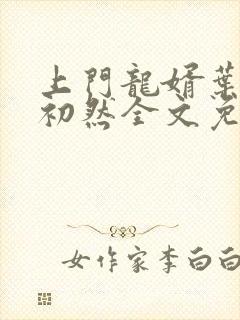 上門龍婿葉
初然全文免
女作家李白白